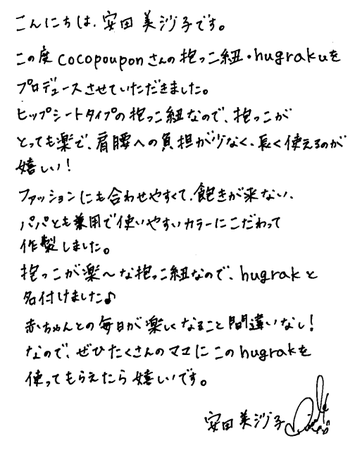 こんにちは、安田美沙子です。
この度cocopouponさんの抱っこ紐・hugrakuを
プロデュースさせていただきました。
ヒップシートタイプの抱っこ紐なので、抱っこが
とっても楽で、肩腰への負担が少なく、長く使えるのが
嬉しい!
ファッションにも合わせやすくて、飽きが来ない、
パパとも兼用で使いやすいカラーにこだわって
作製しました。
抱っこが楽〜な抱っこ紐なので、hugrakと
名付けました♪
赤ちゃんとの毎日が楽しくなること間違いなし!
なので、ぜひたくさんのママにこのhugrakを
使ってもらえたら嬉しいです。
安田美沙子